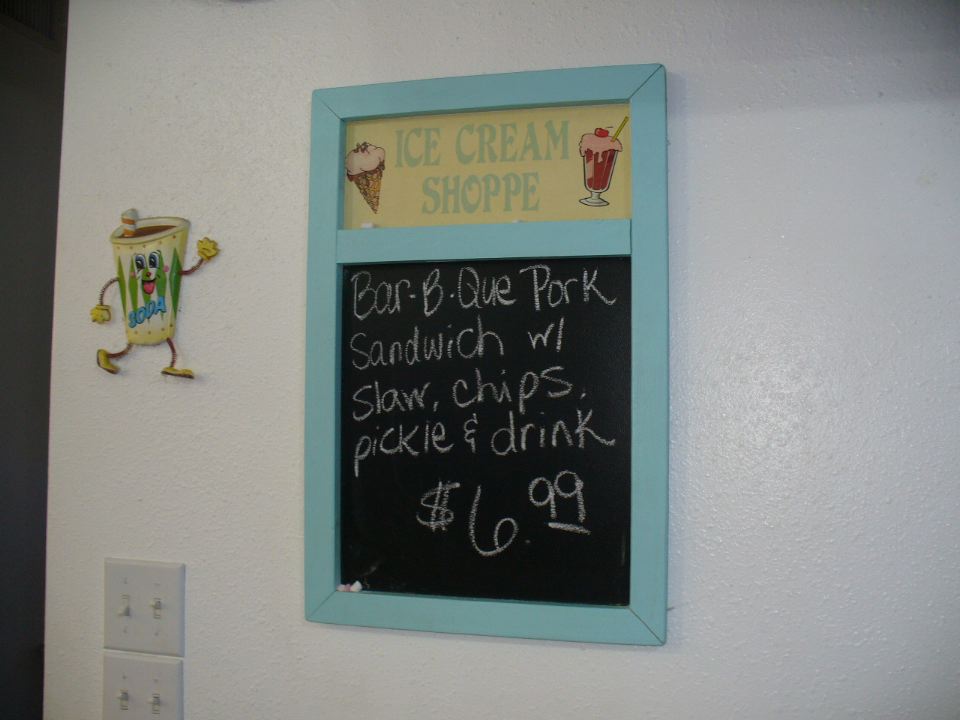 ICE CREAM
SHOPPE
Bar-B-Que Pork
Sandwich w/
slaw, chips,
pickle & drink
$6.99
SODA